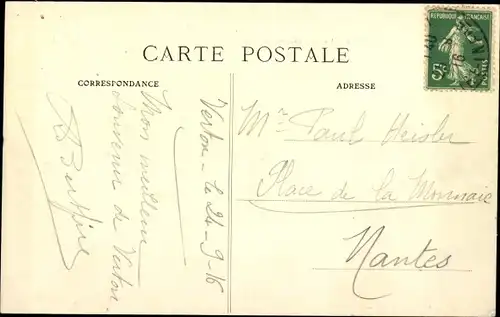 CARTE POSTALE
CORRESPONDANCE
ADRESSE
REPUBLIQUE FRANÇAISE
5c
POSTES
16
Verton - le 24-9-16
Mon meilleur
souvenir de Verton.
Mr Paul Heisler
Place de la Monnaie
Nantes